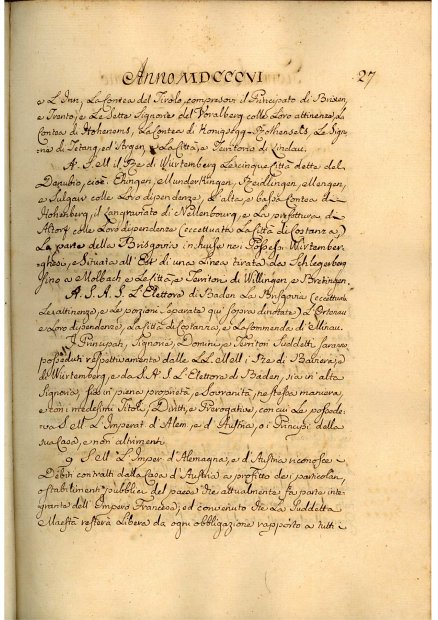 Anno MDCCCVI 27
e L'Inn, La Contea del Tirolo, compresovi il Principato di Brixen,
e Trento, e Le Sette Signorie del Voralberg colle Loro attinenze, La
Contea di Hohenems, La Contea di Konigsegg-Rothenfels, Le Signo-
rie di Tetang, ed Argen, e La Città, e Territorio di Lindau.
A. S. M. il Re di Wurtemberg Le cinque Città dette del
Danubio, cioè, Ehingen, Munderkingen, Reidlingen, Mengen,
e Sulgau colle Loro dipendenze, L'alta, e bassa Contea di
Hohenberg, il Langraviato di Nellenbourg, e La prefettura di
Altorf colle Loro dipendenze (eccettuata La Città di Costanza)
La parte della Brisgovia inchiusa nei Possessi Wirtember-
ghesi, e Situata all'Est di una Linea tirata da Schlegerberg
fino a Molbach e Le Città, e Territorj di Willingen, e Bretingen.
A. S. A. S. L'Elettore di Baden La Brisgovia (eccettuata
Le attinenze, e Le porzioni separate qui sopra dinotate) L'Ortenau
e Loro dipendenze, La Città di Costanza, e La Commenda di Meinau.
I Principati, Signorie, Dominj, e Territorj Suddetti saranno
posseduti rispettivamente dalle LL. MM. i Re di Baviera, e
di Wurtemberg, e da S. A. S. L'Elettore di Baden, sia in alta
Signoria, sia in piena proprietà, e Sovranità, nella stessa maniera,
e con i medesimi Titoli, Diritti, e Prerogative, con cui Le possede-
va S. M. L'Imperat. d'Alem., e d'Austria, o i Principi della
sua Casa, e non altrimenti.
9 S. M. L'Imper. d'Alemagna, e d'Austria riconosce i
Debiti contratti dalla Casa d'Austria a profitto dei particolari,
o stabilimenti pubblici del paese che attualmente fa parte inte-
grante dell'Impero Francese; ed convenuto che La Suddetta
Maestà resterà Libera da ogni obbligazione rapporto a tutti i